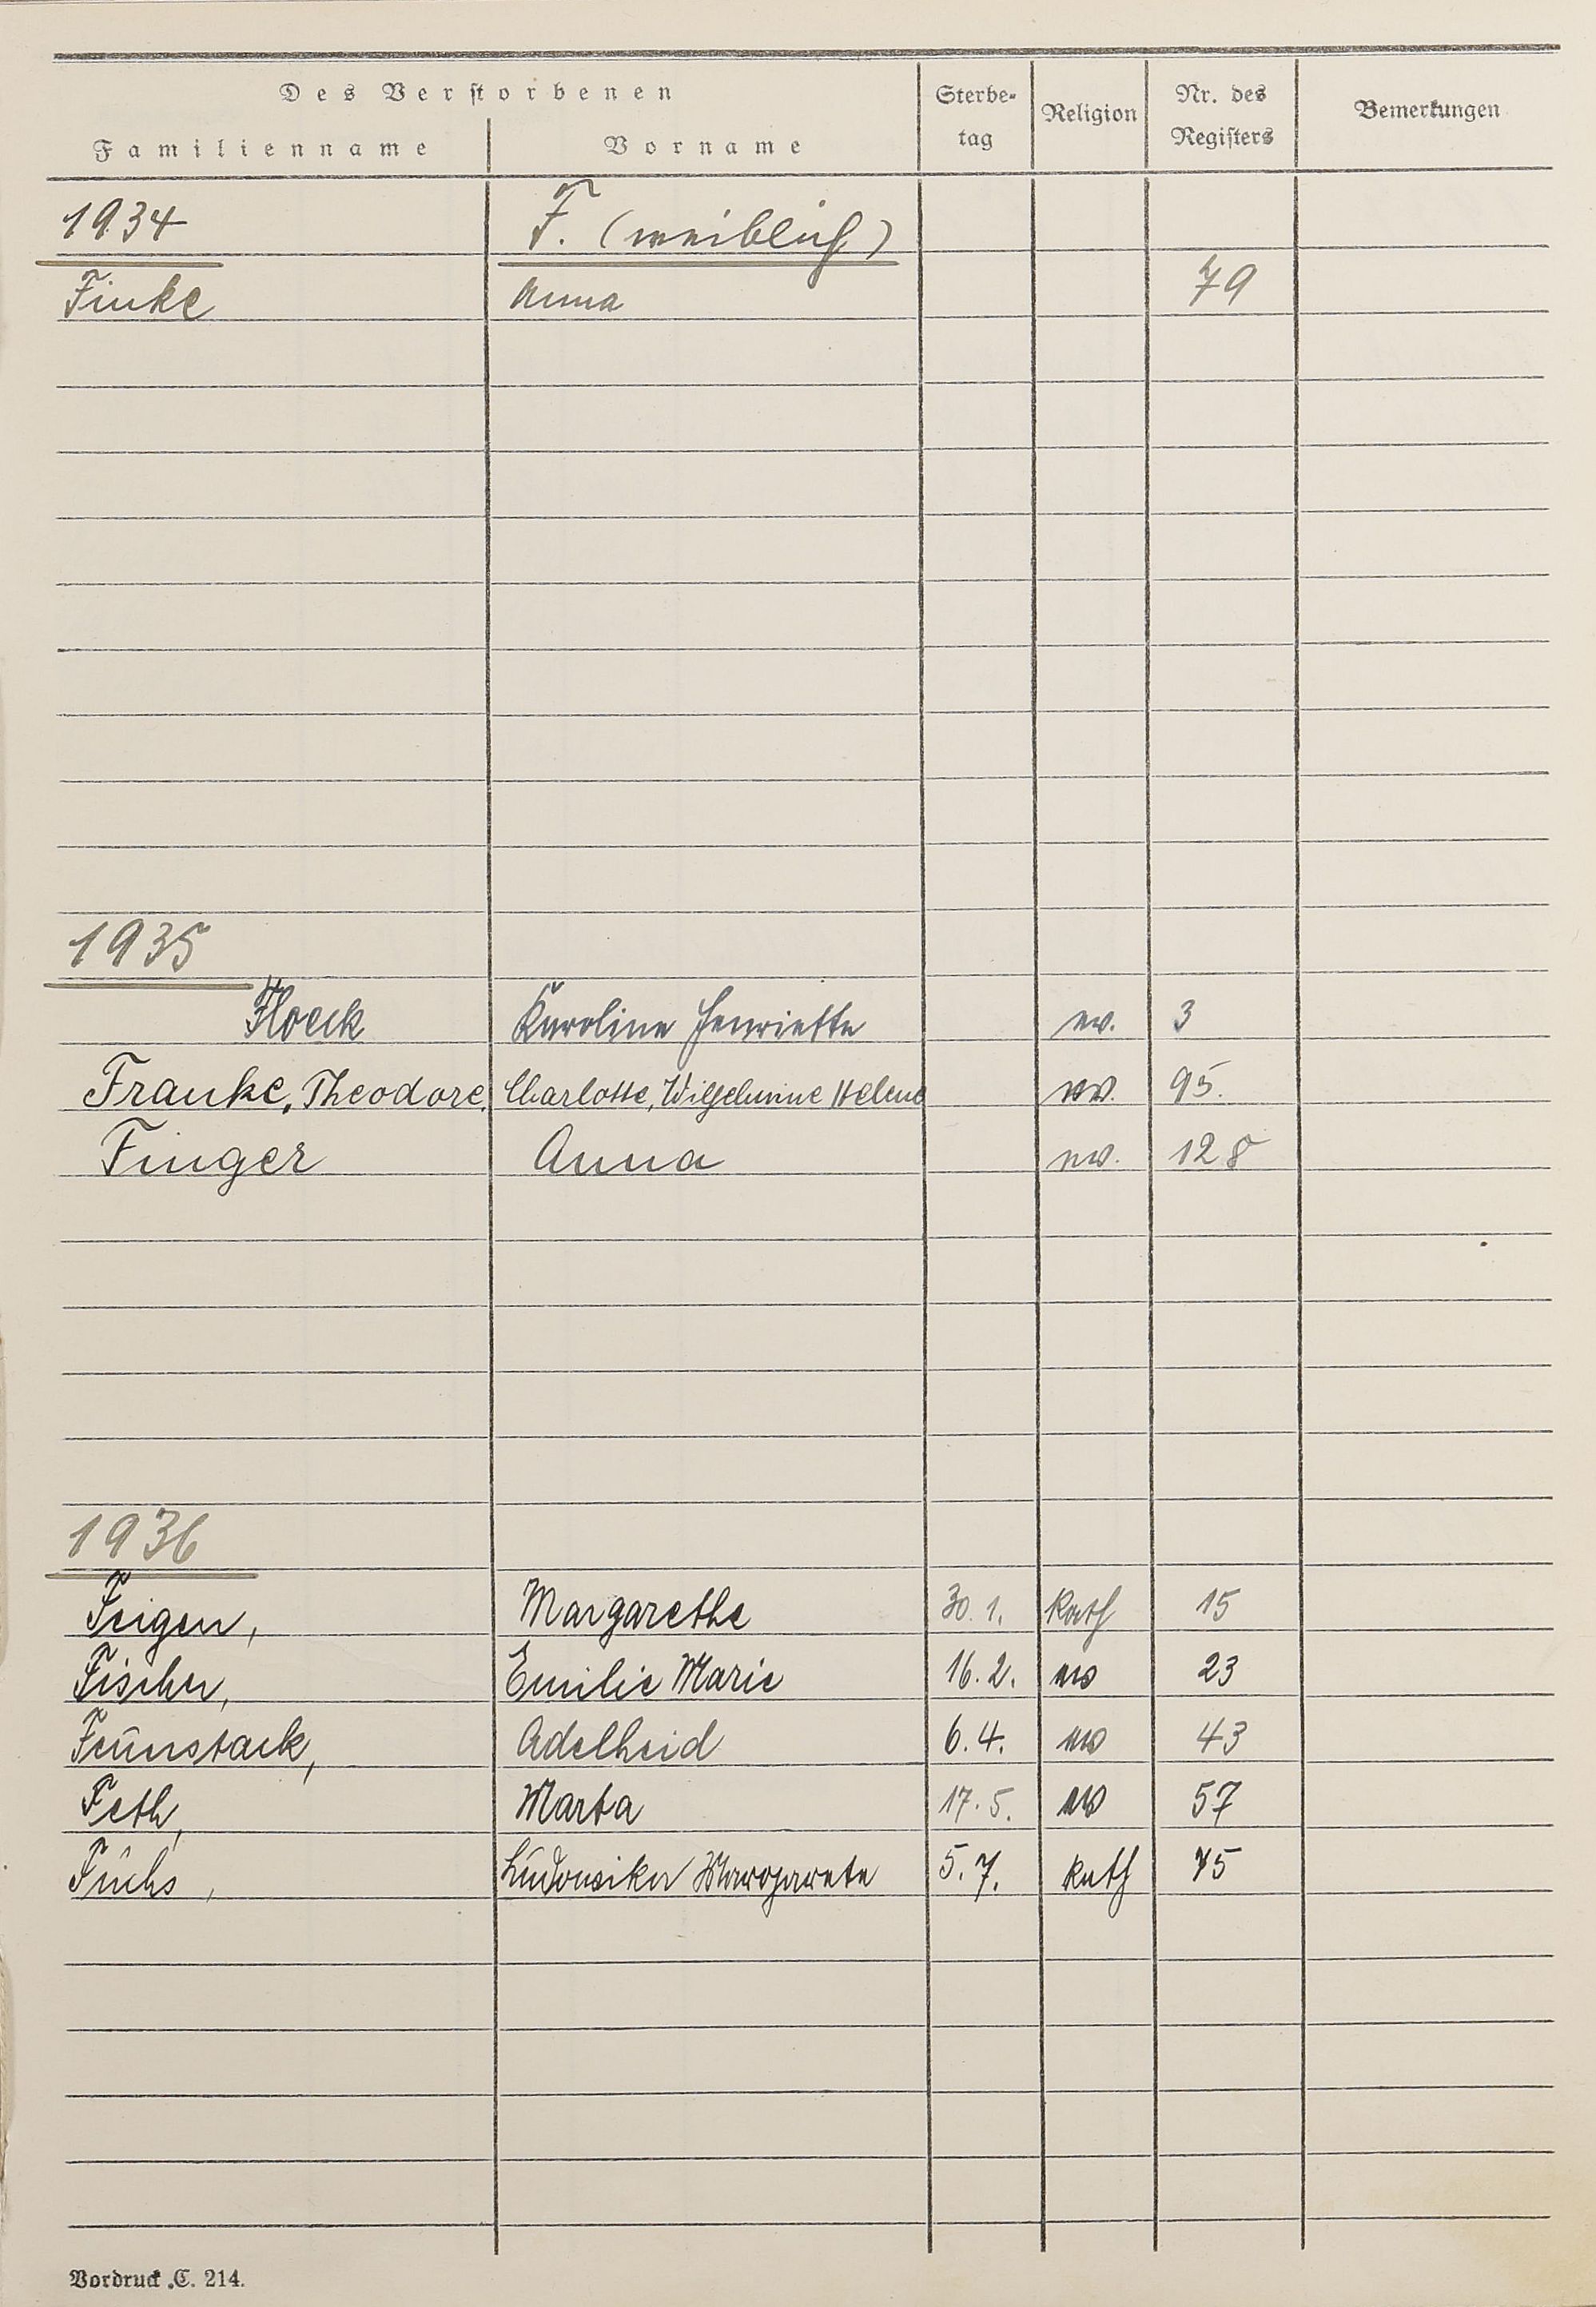 Des Verstorbenen Sterbe- Religion Nr. des Bemerkungen
Familienname Vorname tag Registers
1934 F. (weiblich)
Finke Anna 79
1935
Floeck Karoline Henriette ev. 3
Franke, Theodore, Charlotte, Wilhelmine Helene ev. 95.
Finger Anna ev. 128
1936
Feigen, Margarethe 30. 1. Kath 15
Fischer, Emilie Marie 16. 2. ev 23
Adelheid 6. 4. ev 43
Feth, Marta 17. 5. ev 57
Fuchs, Ludowika Margarete 5. 7. kath 75
Vordruck C. 214.